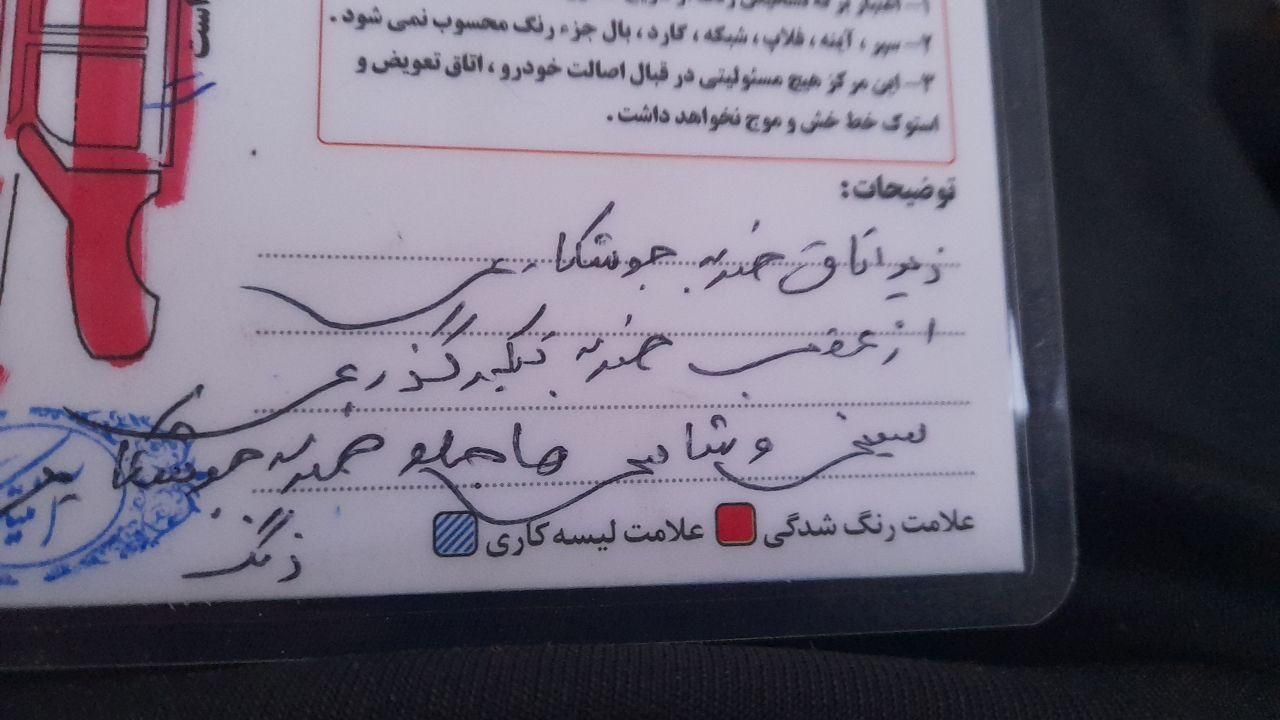 ۲- سپر ، آینه ، فلاپ ، شبکه ، گارد ، بال جزء رنگ محسوب نمی شود .
۳- این مرکز هیچ مسئولیتی در قبال اصالت خودرو ، اتاق تعویض و
استوک خط خش و موج نخواهد داشت .
توضیحات:
زیر اتاق ضربه جوشکاری
از عقب ضربه گلگیر
سینی و شاسی ها جلو ضربه جوشکاری
رنگ
علامت رنگ شدگی
علامت لیسه کاری
است